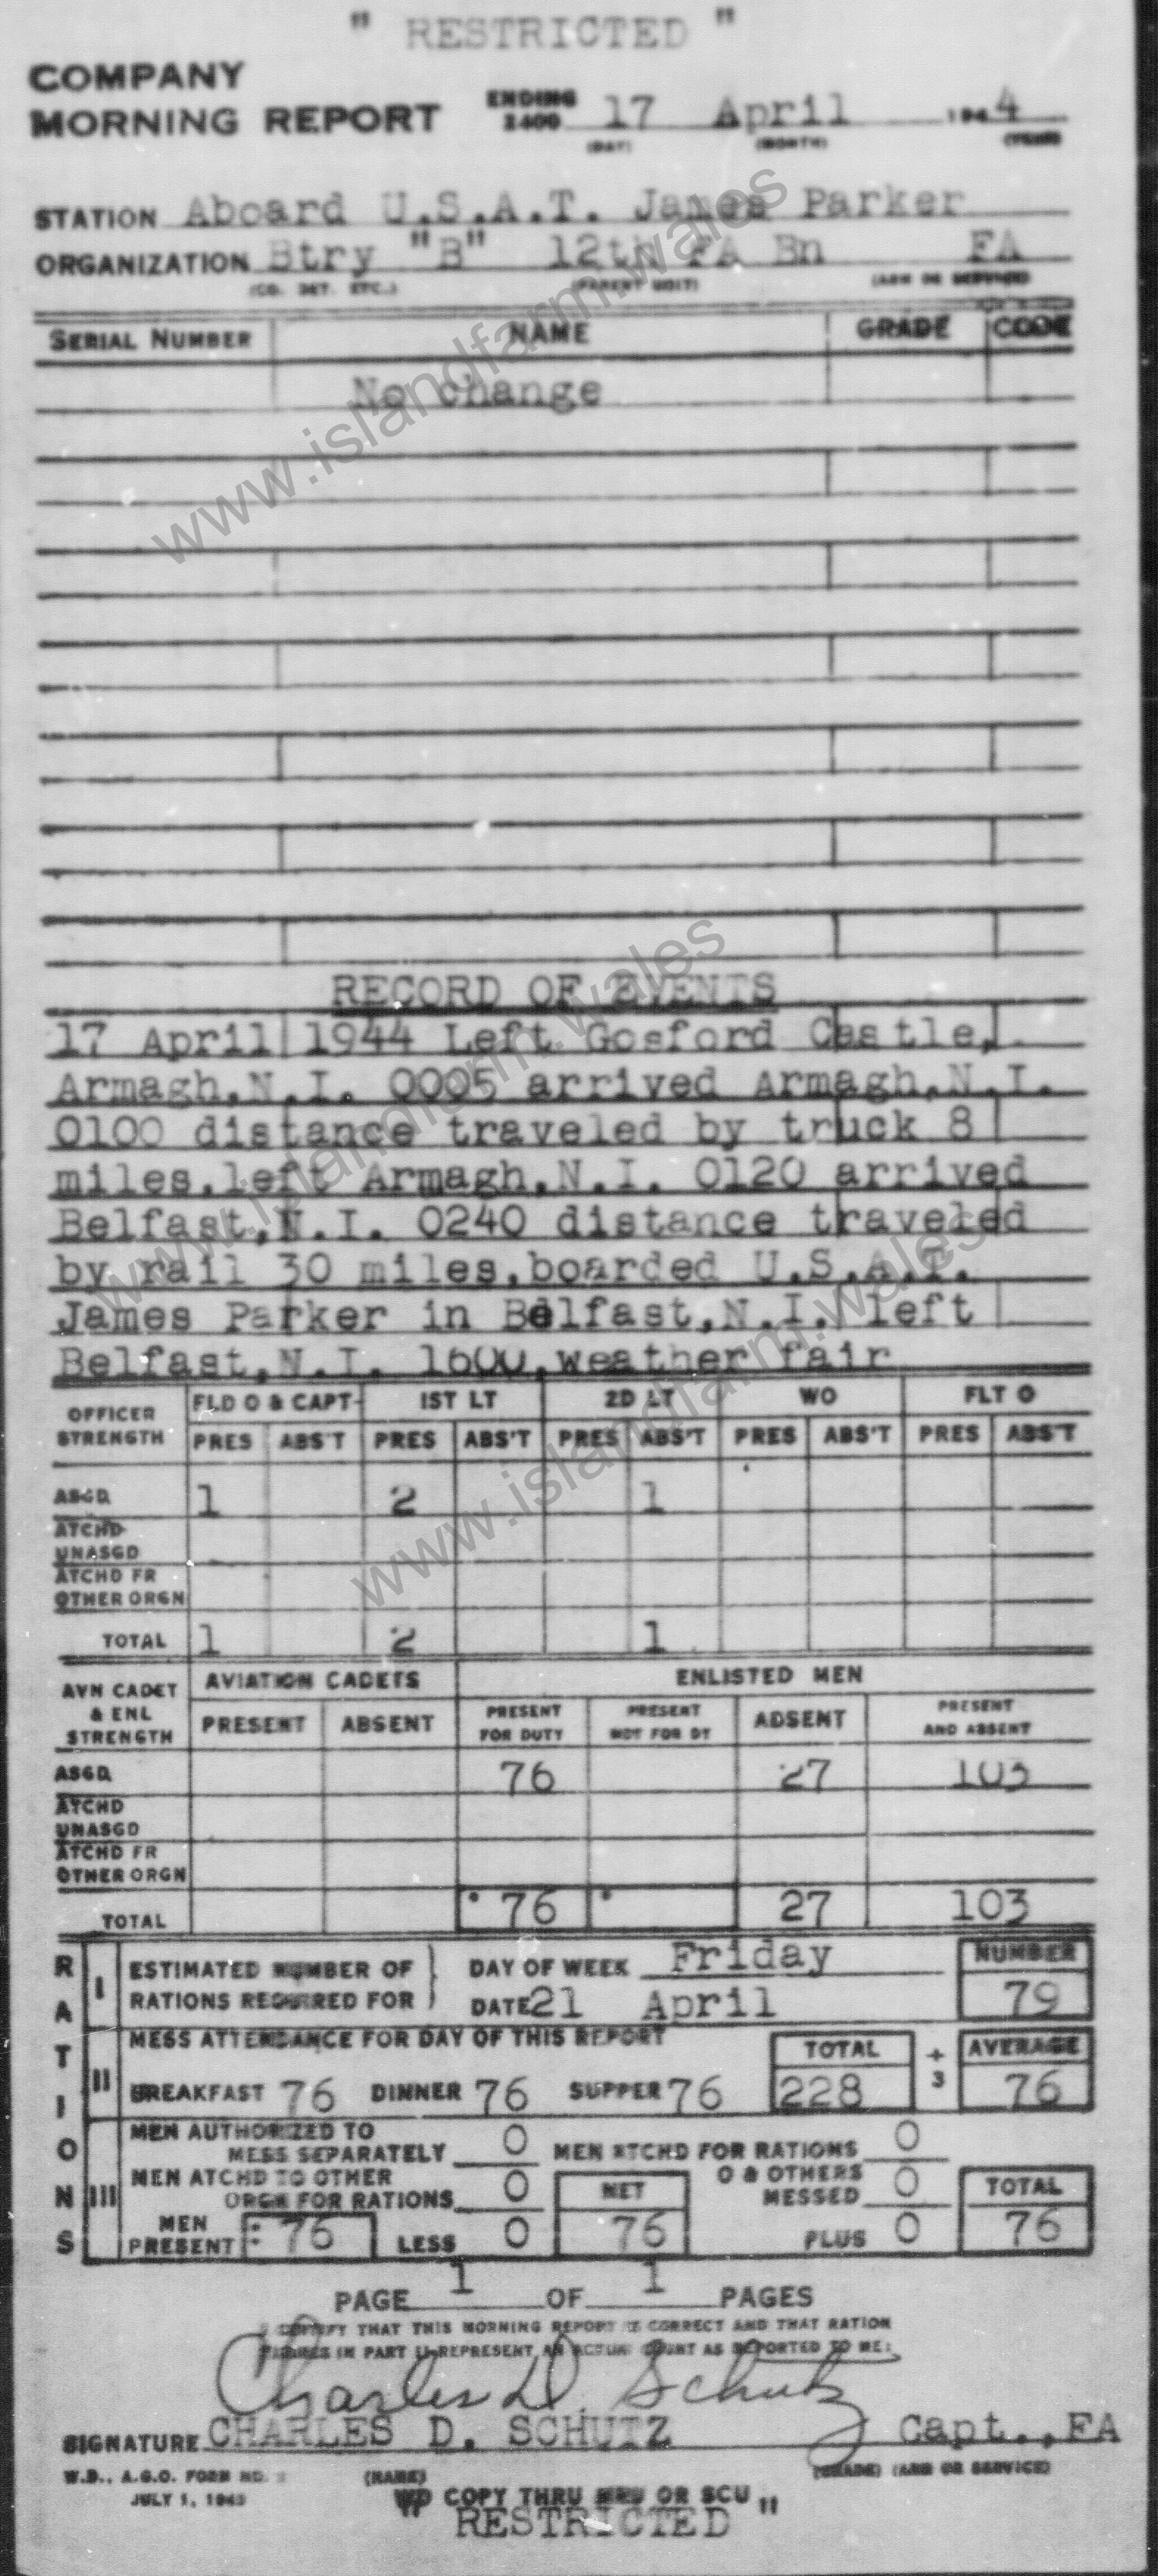 " RESTRICTED "
COMPANY
MORNING REPORT ENDING 2400 17 April 1944
(DAY) (MONTH) (YEAR)
STATION Aboard U.S.A.T. James Parker
ORGANIZATION Btry "B" 12th FA Bn FA
(CO. DET. ETC.) (PARENT UNIT) (ARM OR SERVICE)
SERIAL NUMBER NAME GRADE CODE
No change
www.islandfarm.wales
RECORD OF EVENTS
17 April 1944 Left Gosford Castle,
Armagh,N.I. 0005 arrived Armagh,N.I.
0100 distance traveled by truck 8
miles.left Armagh,N.I. 0120 arrived
Belfast,N.I. 0240 distance traveled
by rail 30 miles,boarded U.S.A.T.
James Parker in Belfast,N.I. left
Belfast,N.I. 1600,weather fair
www.islandfarm.wales
www.islandfarm.wales
OFFICER STRENGTH FLD O & CAPT 1ST LT 2D LT WO FLT O
PRES ABS'T PRES ABS'T PRES ABS'T PRES ABS'T PRES ABS'T
ASGD 1 2 1
ATCHD UNASGD
ATCHD FR OTHER ORGN
TOTAL 1 2 1
AVN CADET & ENL STRENGTH AVIATION CADETS ENLISTED MEN
PRESENT ABSENT PRESENT FOR DUTY PRESENT NOT FOR DY ABSENT PRESENT AND ABSENT
ASGD 76 27 103
ATCHD UNASGD
ATCHD FR OTHER ORGN
TOTAL 76 27 103
RATIONS
I ESTIMATED NUMBER OF DAY OF WEEK Friday NUMBER
RATIONS REQUIRED FOR DATE 21 April 79
II MESS ATTENDANCE FOR DAY OF THIS REPORT TOTAL ÷ 3 AVERAGE
BREAKFAST 76 DINNER 76 SUPPER 76 228 76
III MEN AUTHORIZED TO MESS SEPARATELY 0 MEN ATCHD FOR RATIONS 0
MEN ATCHD TO OTHER ORGN FOR RATIONS 0 NET O & OTHERS MESSED 0 TOTAL
MEN PRESENT 76 LESS 0 76 PLUS 0 76
PAGE 1 OF 1 PAGES
I CERTIFY THAT THIS MORNING REPORT IS CORRECT AND THAT RATION
FIGURES IN PART II REPRESENT AN ACTUAL COUNT AS REPORTED TO ME:
Charles D. Schutz
SIGNATURE CHARLES D. SCHUTZ Capt., FA
W.D., A.G.O. FORM NO. (NAME) (GRADE) (ARM OR SERVICE)
JULY 1, 1943
WD COPY THRU MRU OR SCU
" RESTRICTED "